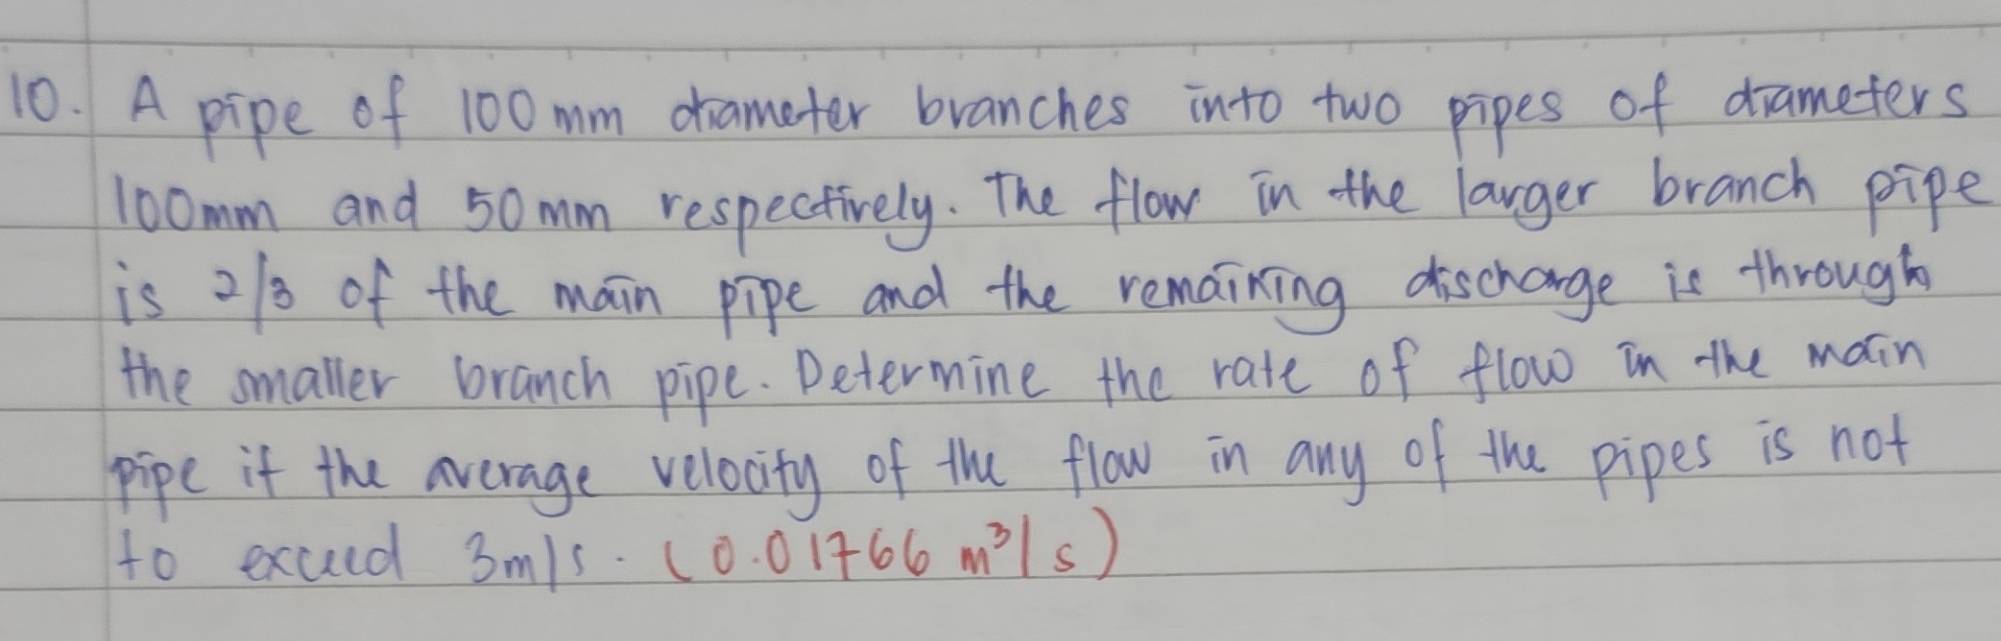 10. A pipe of 100 mm diameter branches into two pipes of diameters
100mm and 50 mm respectively. The flow in the larger branch pipe
is 2/3 of the main pipe and the remaining discharge is through
the smaller branch pipe. Determine the rate of flow in the main
pipe if the average velocity of the flow in any of the pipes is not
to exceed 3m/s. (0.01766 m³/s)